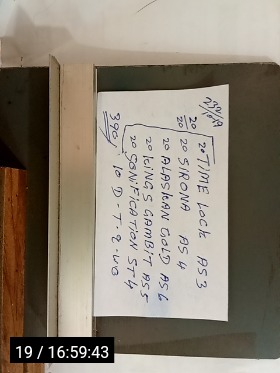 20
20
20 TIME LOCK AS3
20 SIRONA AS4
20 ALASKAN GOLD AS6
20 KING'S GAMBIT AS5
20 SONIFICATION ST4
390 10 D-T-2-WO
19 / 16:59:43